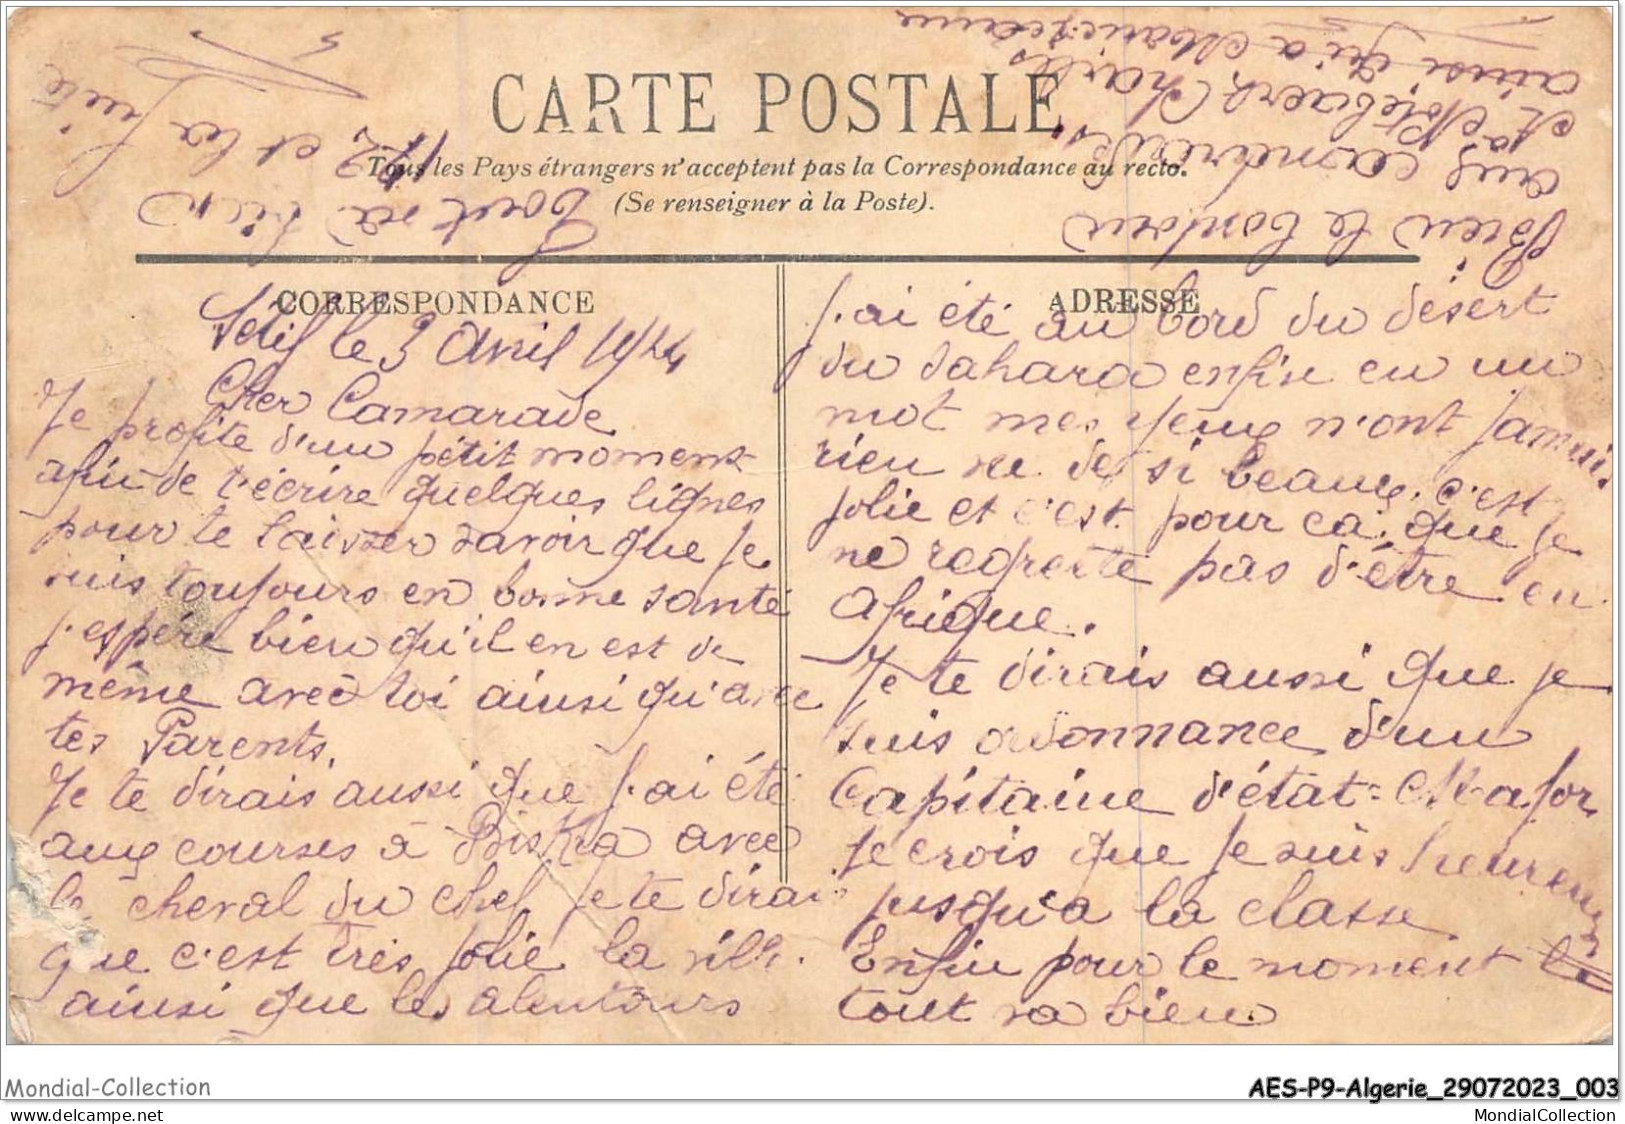 CARTE POSTALE
Tous les Pays étrangers n'acceptent pas la Correspondance au recto.
(Se renseigner à la Poste).
CORRESPONDANCE
ADRESSE
Sétif le 3 Avril 1914
Cher Camarade
Je profite d'un pétit moment
afin de t'écrire quelques lignes
pour te laisser savoir que je
suis toujours en bonne santé
j'espére bien qu'il en est de
même avec toi ainsi qu'avec
tes Parents.
Je te dirais aussi que j'ai été
aux courses à Biskra avec
le cheval du chef je te dirai
que c'est très jolie la ville.
ainsi que les alentours
j'ai été au bord du désert
du Sahara enfin en un
mot mes yeux n'ont jamais
rien vue de si beaux. c'est
jolie et c'est pour ca que je
ne regrette pas d'être en
Afrique.
Je te dirais aussi que je
suis ordonnance d'un
Capitaine d'état-Major
je crois que je suis heureux
jusqu'a la classe
Enfin pour le moment
tout va bien
Bien le bonjour
aux camarades
Charles
ainsi qu'a
Tout va bien
172 et la fuite
Mondial-Collection
AES-P9-Algerie_29072023_003
www.delcampe.net
MondialCollection